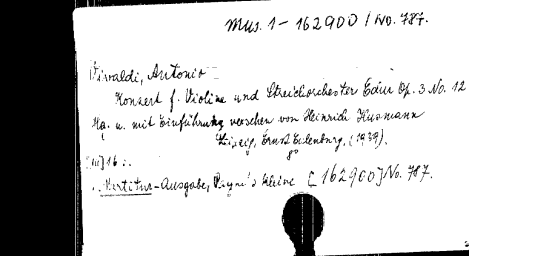 Mus. 1 - 162900 / No. 787.
Vivaldi, Antonio
Konzert f. Violine und Streichorchester Edur Op. 3 No. 12
Hg. u. mit Einführung versehen von Heinrich Husmann
Leipzig, Ernst Eulenburg, (1939).
8°
16
Partitur-Ausgabe, Payne's kleine [162900] No. 787.